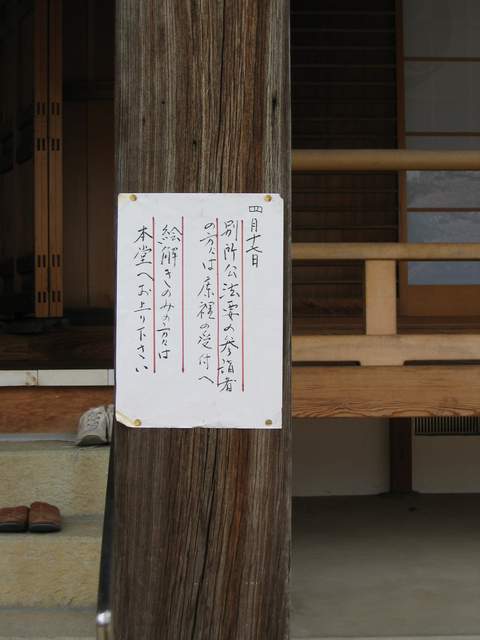 四月十七日
別所公法要の参詣者
の方々は庫裡の受付へ
絵解きのみの方々は
本堂へお上り下さい